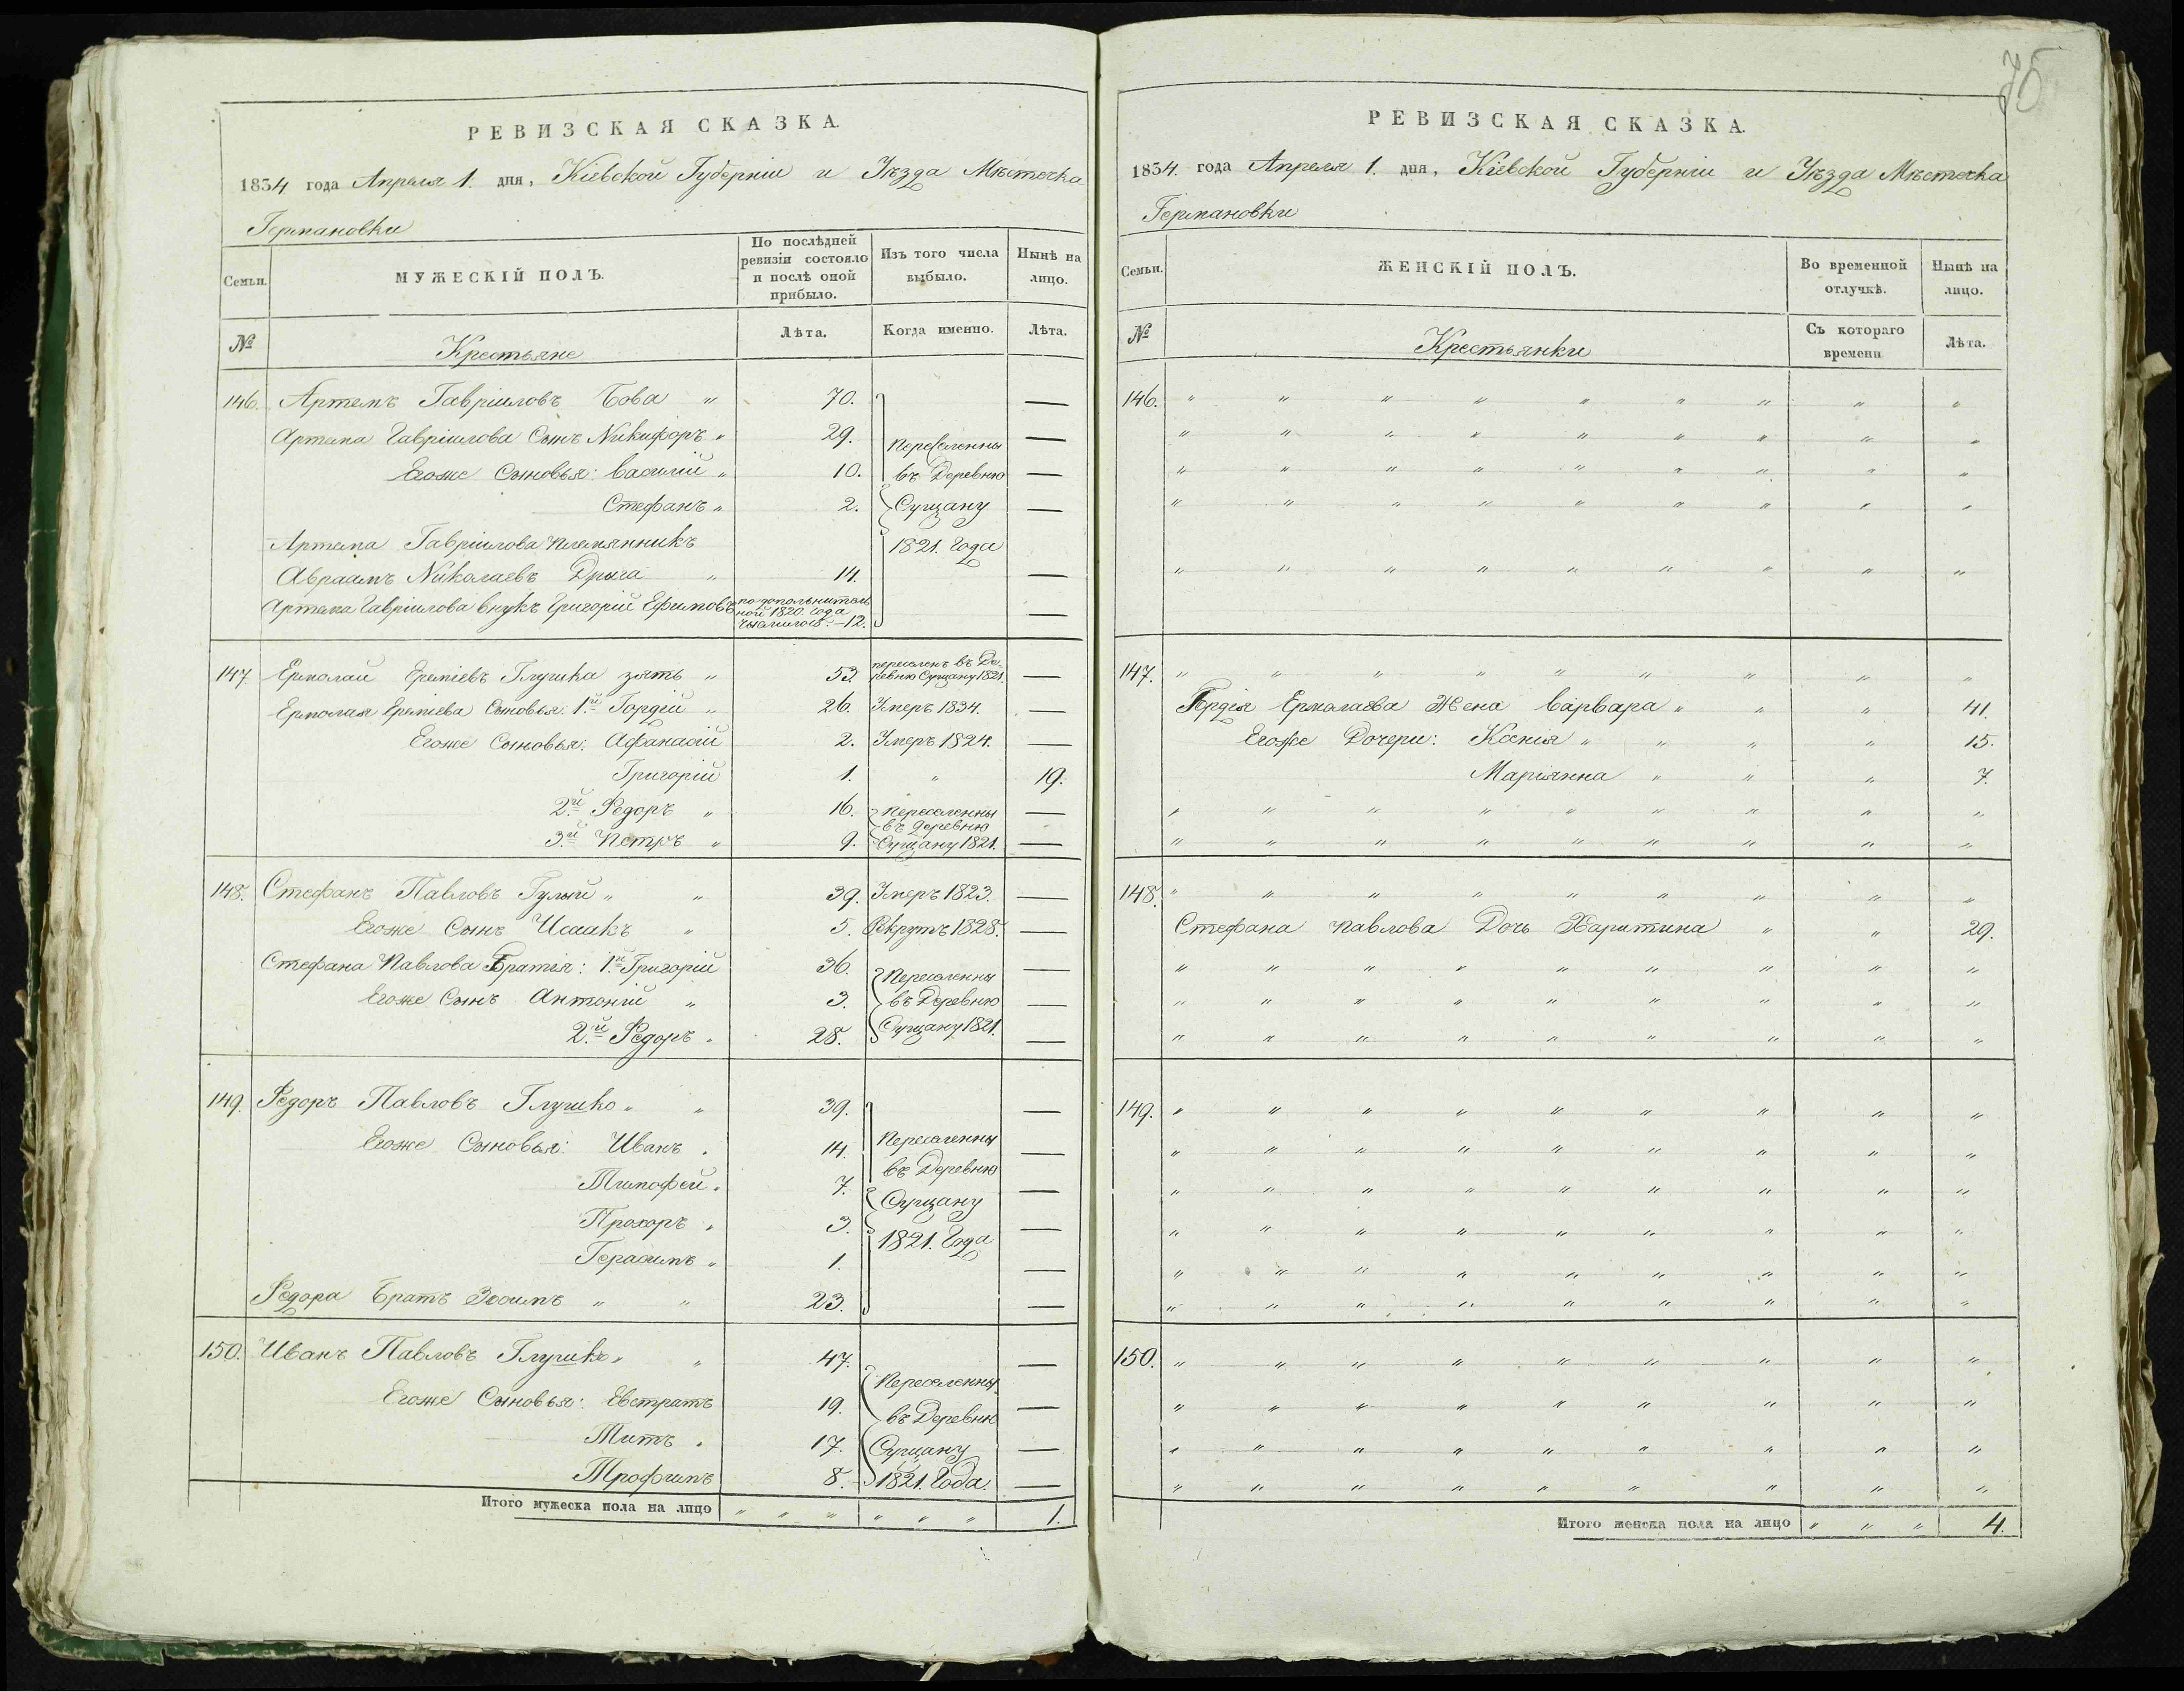 75
РЕВИЗСКАЯ СКАЗКА.
1834 года Апреля 1. дня, Кіевской Губерніи и Уѣзда Мѣстечка
Германовки
Семьи.
МУЖЕСКІЙ ПОЛЪ.
По послѣдней ревизіи состояло и послѣ оной прибыло.
Изъ того числа выбыло.
Нынѣ на лицо.
№
Крестьяне
Лѣта.
Когда именно.
Лѣта.
146. Артемъ Гавріиловъ Бова " 70. —
Артема Гавріилова Сынъ Никифоръ " 29. Переселенны —
Егоже Сыновья: Василій " 10. въ Деревню —
Стефанъ " 2. Сущану —
Артема Гавріилова племянникъ 1821. Года
Авраамъ Николаевъ Дрыга " 14. —
Артема Гавріилова внукъ Григорій Ефимовъ по дополнитель
ной 1820. года
числился: —12. —
147. Ермолай Еремѣевъ Глушка зять " 53. переселенъ въ Де-
ревню Сущану 1821. —
Ермолая Еремѣева Сыновья: 1.й Гордѣй " 26. Умеръ 1834. —
Егоже Сыновья: Афанасій 2. Умеръ 1824. —
Григорій 1. " 19.
2.й Федоръ " 16. Переселенны —
въ Деревню
3.й Петръ " 9. Сущану 1821. —
148. Стефанъ Павловъ Гулый " " 39. Умеръ 1823. —
Егоже Сынъ Исаакъ " 5. Рекрутъ 1828. —
Стефана Павлова Братія: 1.й Григорій 36. Переселенны —
Егоже Сынъ Антоній " 3. въ Деревню —
2.й Федоръ " 28. Сущану 1821. —
149. Федоръ Павловъ Глушко " " 39. —
Егоже Сыновья: Иванъ " 14. Переселенны —
въ Деревню
Тимофей " 7. Сущану —
Прохоръ " 3. —
1821. Года
Герасимъ " 1. —
Федора Братъ Зосимъ " " 23. —
150. Иванъ Павловъ Глушко " " 47. —
Переселенны
Егоже Сыновья: Евстратъ 19. въ Деревню —
Титъ " 17. Сущану —
Трофимъ 8. 1821. Года. —
Итого мужеска пола на лицо " " " " " " 1.
РЕВИЗСКАЯ СКАЗКА.
1834. года Апреля 1. дня, Кіевской Губерніи и Уѣзда Мѣстечка
Германовки
Семьи.
ЖЕНСКІЙ ПОЛЪ.
Во временной отлучкѣ.
Нынѣ на лицо.
№
Крестьянки
Съ котораго времени
Лѣта.
146. " " " " " " " " "
" " " " " " " " "
" " " " " " " " "
" " " " " " " " "
" " " " " " " " "
147. " " " " " " " " "
Гордѣя Ермолаева Жена Варвара " " " 41.
Егоже Дочери: Ксенія " " " " 15.
Маріянна " " " 7.
" " " " " " " " "
" " " " " " " " "
148. " " " " " " " " "
Стефана Павлова Дочь Харитина " " 29.
" " " " " " " " "
" " " " " " " " "
" " " " " " " " "
149. " " " " " " " " "
" " " " " " " " "
" " " " " " " " "
" " " " " " " " "
" " " " " " " " "
" " " " " " " " "
150. " " " " " " " " "
" " " " " " " " "
" " " " " " " " "
" " " " " " " " "
Итого женска пола на лицо " " " 4.